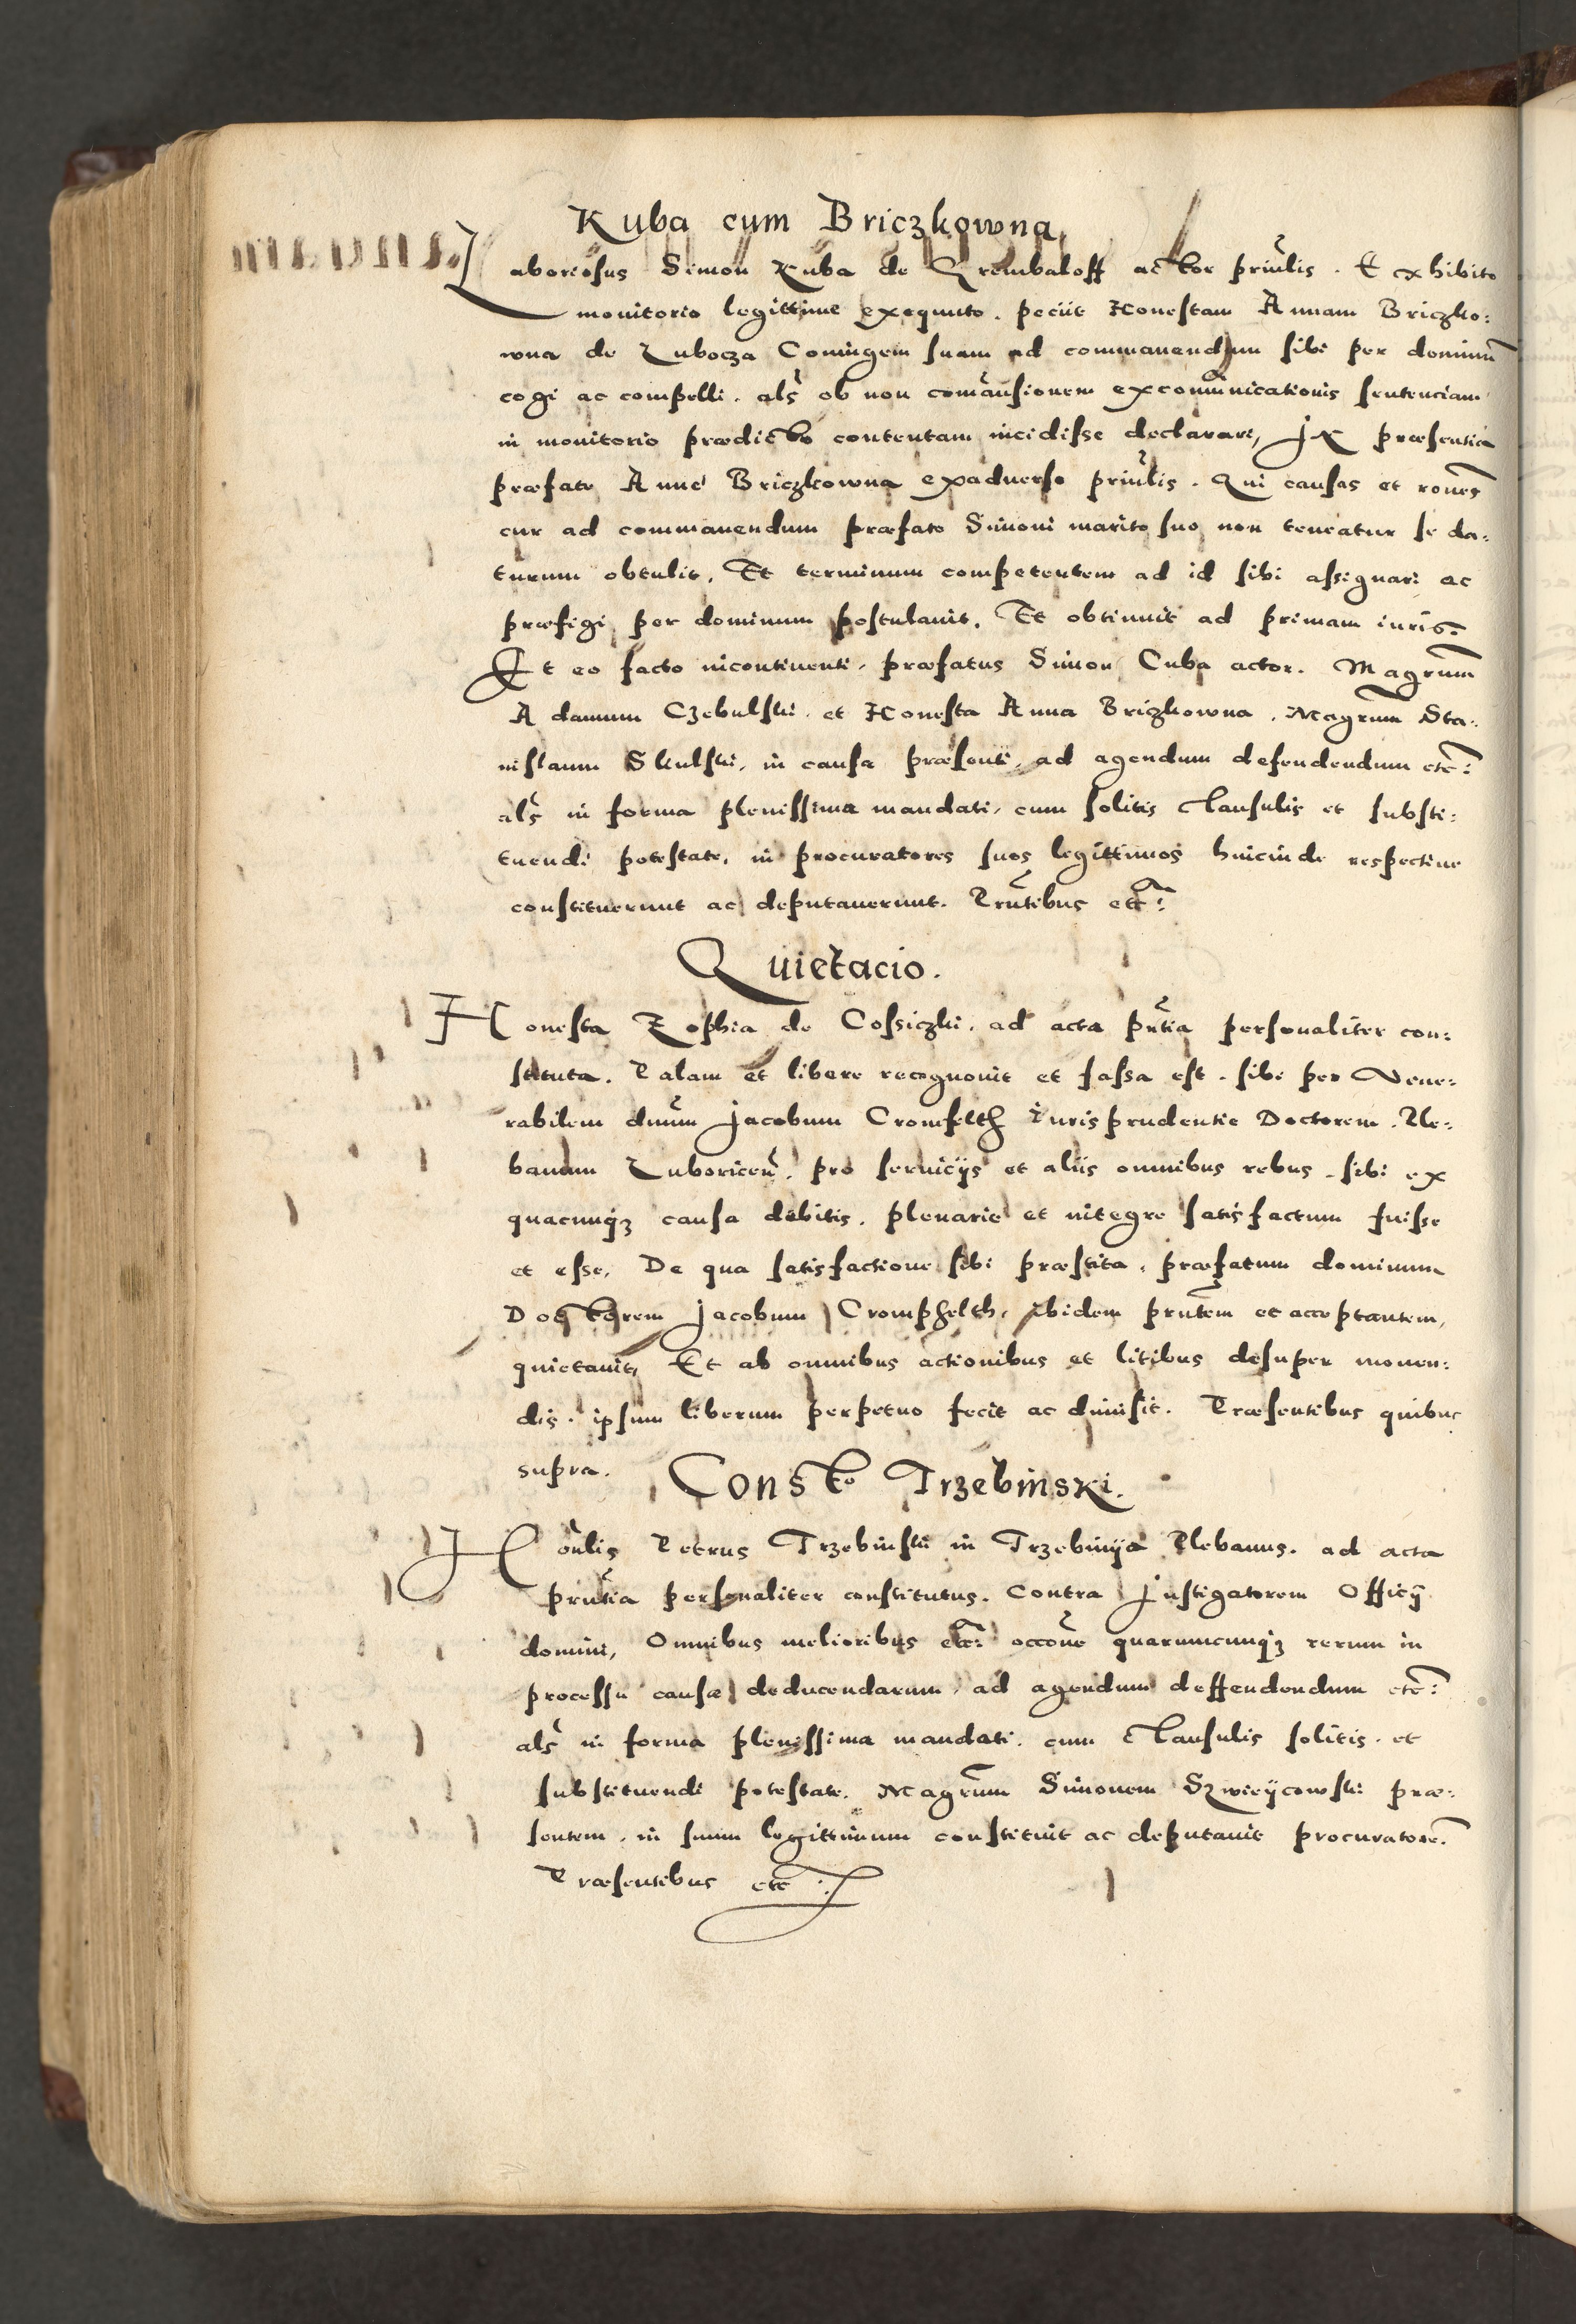 Kuba cum Briczkowna.
Laboriosus Simon Kuba de Grembaloff actor prin̄lis. Et exhibito
monitorio legittime exequuto. peciit Honestam Annam Briczko:
wna de Lubocza Coniugem suam ad commanendum sibi per dominū
cogi ac compelli. als̄ ob non com̄ansionem excom̄unicationis sentenciam
in monitorio prædicto contentam incidisse declarari, In præsentia
præfate Anne Briczkowna exaduerso prin̄lis. Qui causas et rōnes
cur ad commanendum præfato Simoni marito suo non teneatur se da:
turum obtulit. Et terminum competentem ad id sibi assignari ac
præfigi per dominum postulauit. Et obtinuit ad primam iuris.
Et eo facto incontinenti, præfatus Simon Cuba actor. Magrūm
Adamum Czebulski. et Honesta Anna Briczkowna. Magrūm Sta:
nislaum Skulski, in causa præsenti, ad agendum defendendum etc̄:
als̄ in forma plenissima mandati, cum solitis clausulis et substi:
tuendi potestate, in procuratores suos legittimos hincinde respectiue
constituerunt ac deputauerunt. Prn̄tibus etc̄:
Quietacio.
Honesta Zophia de Cossiczki. ad acta pn̄tia personaliter con:
stituta. Palam et libere recognouit et fassa est. sibi per Vene:
rabilem dn̄um Jacobum Cromfelth Iurisprudentie Doctorem. Ple:
banum Luboricen̄. pro seruicijs et aliis omnibus rebus. sibi ex
quacunqȝ causa debitis. plenarie et integre satisfactum fuisse
et esse, De qua satisfactione sibi præstita, præfatum dominum
Doctorem Jacobum Cromphelth, ibidem prn̄tem et acceptantem,
quietauit, Et ab omnibus actionibus et litibus desuper mouen:
dis. ipsum liberum perpetuo fecit ac dimisit. Præsentibus quibus
supra.
Consto Trzebinski.
Hon̄lis Petrus Trzebinski in Trzebinija Plebanus. ad acta
prn̄tia personaliter constitutus. Contra Instigatorem Officij
domini, Omnibus melioribus etc̄: occōne quarumcunqȝ rerum in
processu causæ deducendarum, ad agendum deffendendum etc̄:
als̄ in forma plenissima mandati. cum clausulis solitis. et
substituendi potestate. Magrūm Simonem Szwieijcowski præ:
sentem. in suum legittimum constituit ac deputauit procuratorē.
Præsentibus etc̄: